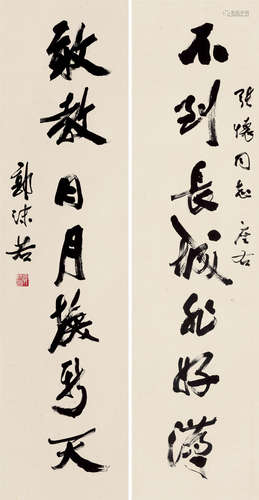 不到長城非好漢
張懷同志座右
敢教日月換新天
郭沫若